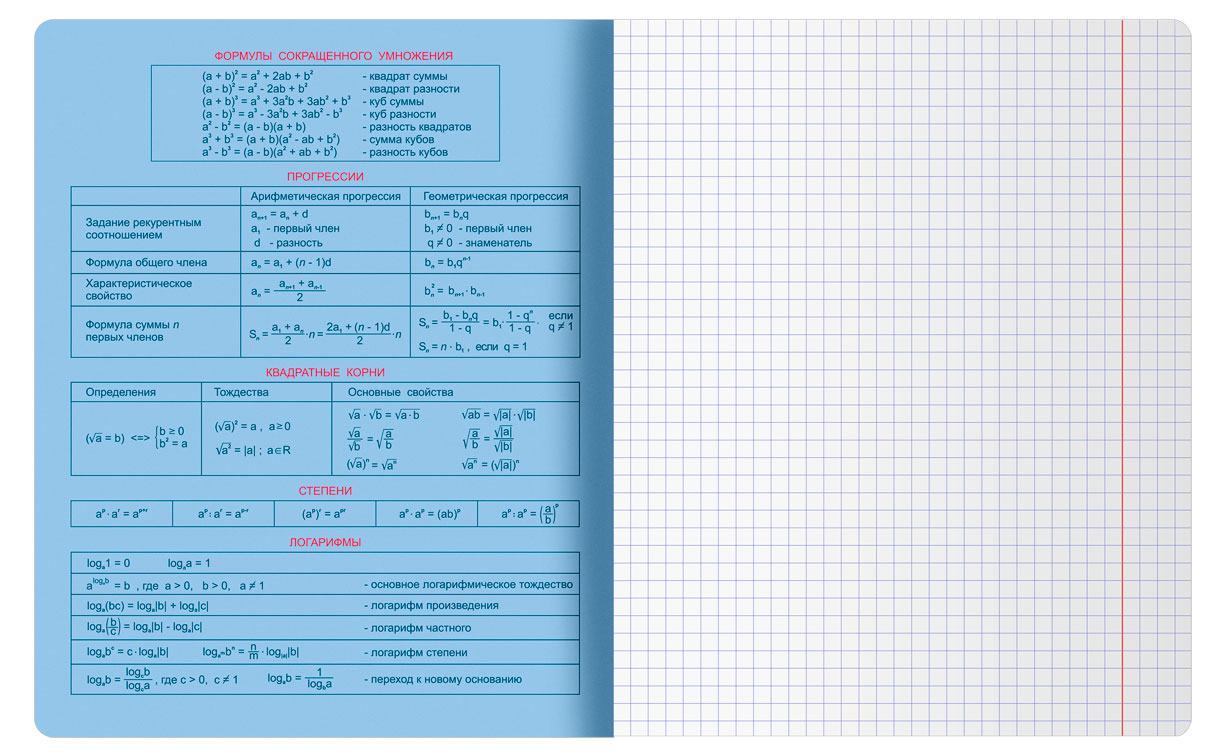 ФОРМУЛЫ СОКРАЩЕННОГО УМНОЖЕНИЯ
(a + b)² = a² + 2ab + b² - квадрат суммы
(a - b)² = a² - 2ab + b² - квадрат разности
(a + b)³ = a³ + 3a²b + 3ab² + b³ - куб суммы
(a - b)³ = a³ - 3a²b + 3ab² - b³ - куб разности
a² - b² = (a - b)(a + b) - разность квадратов
a³ + b³ = (a + b)(a² - ab + b²) - сумма кубов
a³ - b³ = (a - b)(a² + ab + b²) - разность кубов
ПРОГРЕССИИ
Арифметическая прогрессия Геометрическая прогрессия
Задание рекурентным соотношением
aₙ₊₁ = aₙ + d
a₁ - первый член
d - разность
bₙ₊₁ = bₙq
b₁ ≠ 0 - первый член
q ≠ 0 - знаменатель
Формула общего члена aₙ = a₁ + (n - 1)d bₙ = b₁qⁿ⁻¹
Характеристическое свойство
aₙ = (aₙ₊₁ + aₙ₋₁)/2
bₙ² = bₙ₊₁ · bₙ₋₁
Формула суммы n первых членов
Sₙ = (a₁ + aₙ)/2 · n = (2a₁ + (n - 1)d)/2 · n
Sₙ = (b₁ - bₙq)/(1 - q) = b₁· (1 - qⁿ)/(1 - q) · если q ≠ 1
Sₙ = n · b₁ , если q = 1
КВАДРАТНЫЕ КОРНИ
Определения Тождества Основные свойства
(√a = b) <=> {b ≥ 0
b² = a
(√a)² = a , a ≥ 0
√a³ = |a| ; a∈R
√a · √b = √a·b √ab = √|a|·√|b|
√a/√b = √(a/b) √(a/b) = √|a|/√|b|
(√a)ⁿ = √aⁿ √aⁿ = (√|a|)ⁿ
СТЕПЕНИ
aᵖ · aʳ = aᵖ⁺ʳ aᵖ : aʳ = aᵖ⁻ʳ (aᵖ)ʳ = aᵖʳ aᵖ · aᵖ = (ab)ᵖ aᵖ : aᵖ = (a/b)ᵖ
ЛОГАРИФМЫ
logₐ1 = 0 logₐa = 1
a^(logₐb) = b , где a > 0, b > 0, a ≠ 1 - основное логарифмическое тождество
logₐ(bc) = logₐ|b| + logₐ|c| - логарифм произведения
logₐ(b/c) = logₐ|b| - logₐ|c| - логарифм частного
logₐbᶜ = c · logₐ|b| logₐᵐbⁿ = n/m · log|ₐ||b| - логарифм степени
logₐb = log_c b/log_c a , где c > 0, c ≠ 1 logₐb = 1/log_b a - переход к новому основанию